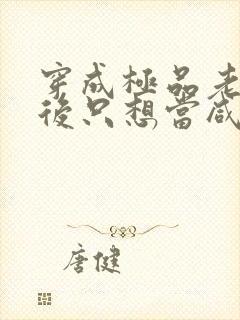 穿成極品老
後只想當咸
唐健